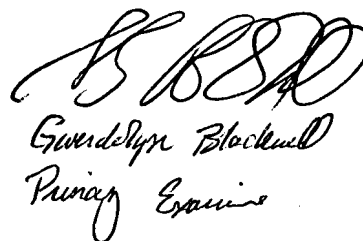 Gwendolyn Blackwell
Primary Examiner